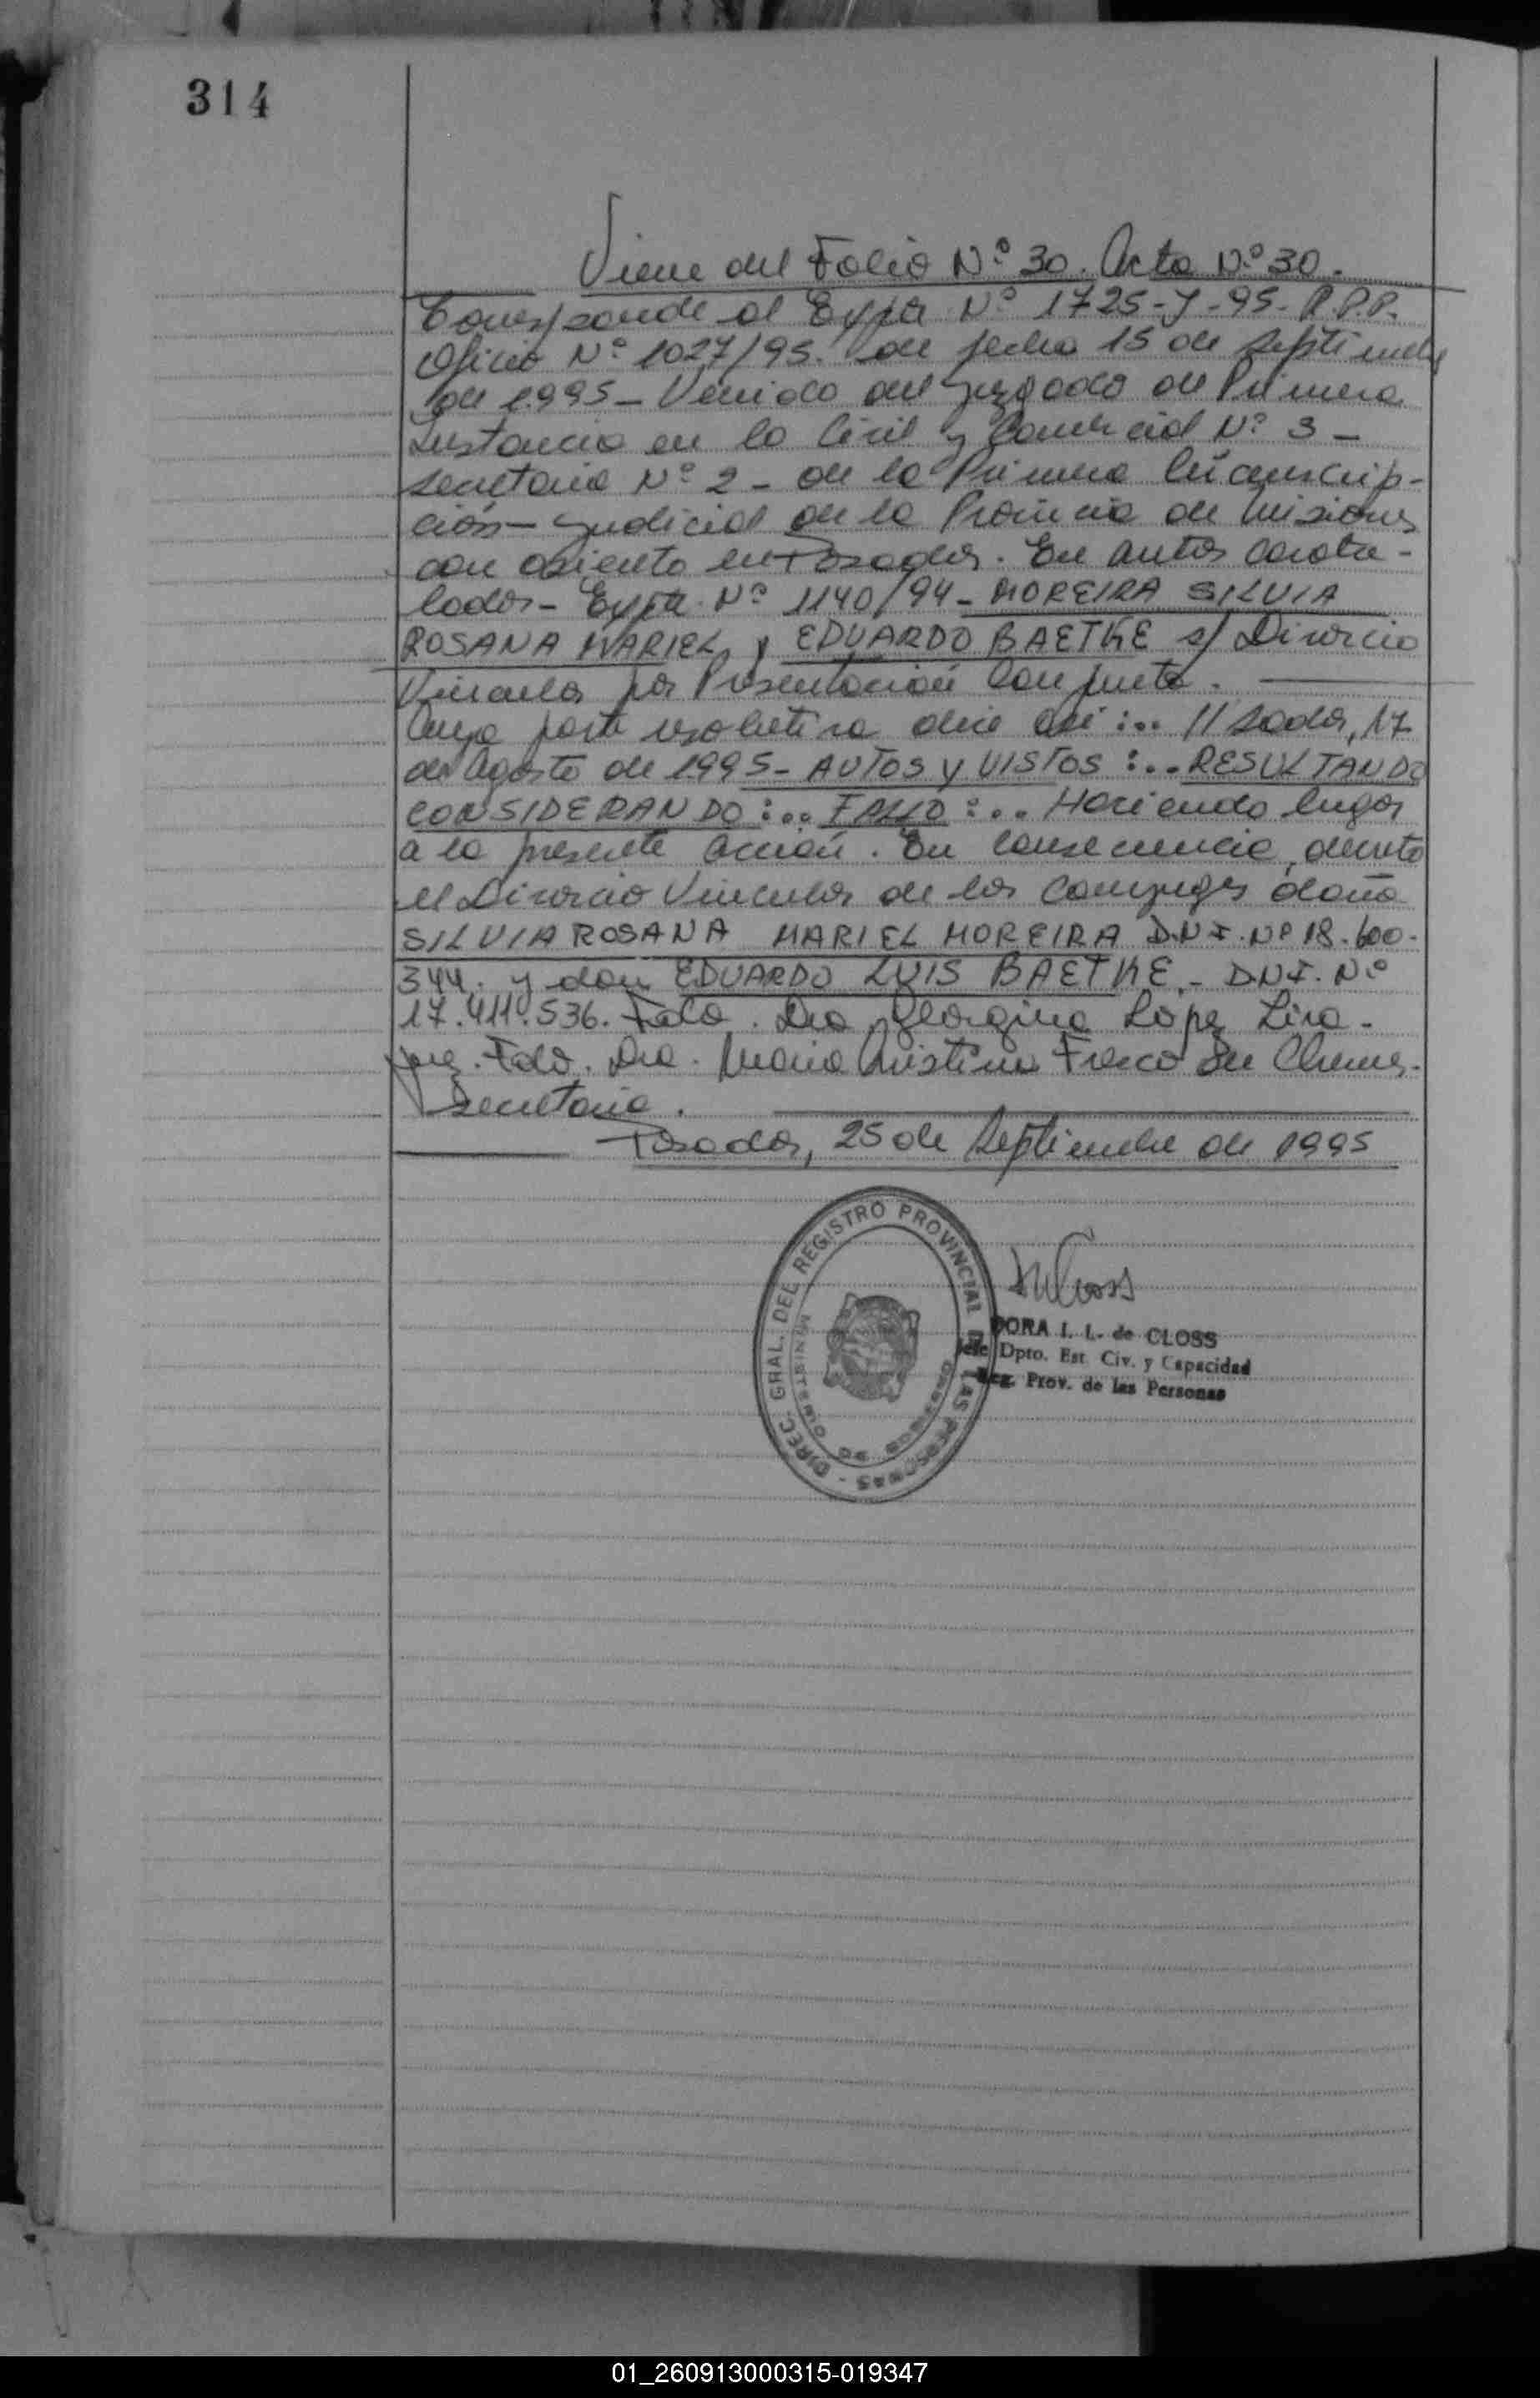 314
Viene del Folio Nº 30. Acta Nº 30.
Corresponde al Expte Nº 1725-J-95-R.P.P.
Oficio Nº 1027/95. de fecha 15 de Septiembre
de 1.995 - Venido del Juzgado de Primera
Instancia en lo Civil y Comercial Nº 3 -
Secretaria Nº 2 - de la Primera Circunscrip-
ción - Judicial de la Provincia de Misiones
con asiento en Posadas. En autos caratu-
lados - Expte. Nº 1140/94 - MOREIRA SILVIA
ROSANA MARIEL y EDUARDO BAETKE s/ Divorcio
Vincular por Presentación Conjunta.
Cuya parte resolutiva dice así:.. //sadas, 17
de Agosto de 1995 - AUTOS y VISTOS:.. RESULTANDO
CONSIDERANDO:.. FALLO:.. Haciendo lugar
a la presente acción. En consecuencia, decreto
el Divorcio Vincular de los conyuges doña
SILVIA ROSANA MARIEL MOREIRA D.N.I. Nº 18.600.
344. y don EDUARDO LUIS BAETKE. - DNI. Nº
17.411.536. Fdo. Dra Georgina Lopez Lira -
Juez. Fdo. Dra. Maria Cristina Fresco de
Secretaria.
Posadas, 25 de Septiembre de 1995
DIREC. GRAL. DEL REGISTRO PROVINCIAL DE LAS PERSONAS -
MINISTERIO DE GOBIERNO
DORA I. L. de CLOSS
Jefe Dpto. Est. Civ. y Capacidad
Reg. Prov. de las Personas
01_260913000315-019347